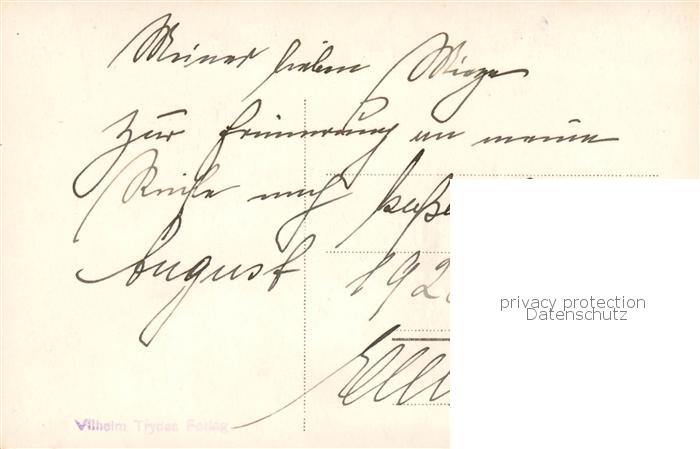 Meiner lieben Miege
Zur Erinnerung an meine
Reise nach
August 192
privacy protection
Datenschutz
Vilhelm Trydes Forlag